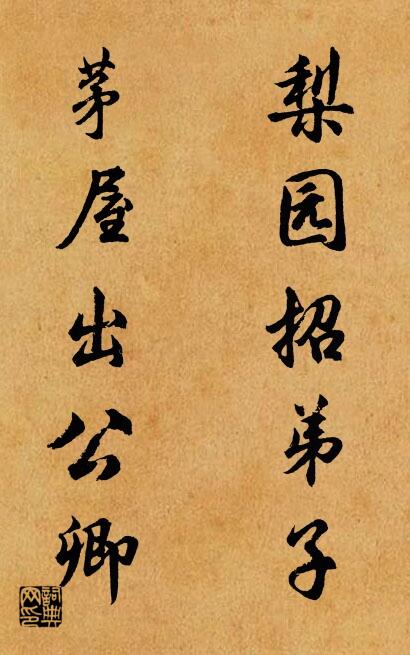 梨园招弟子
茅屋出公卿
词典网印